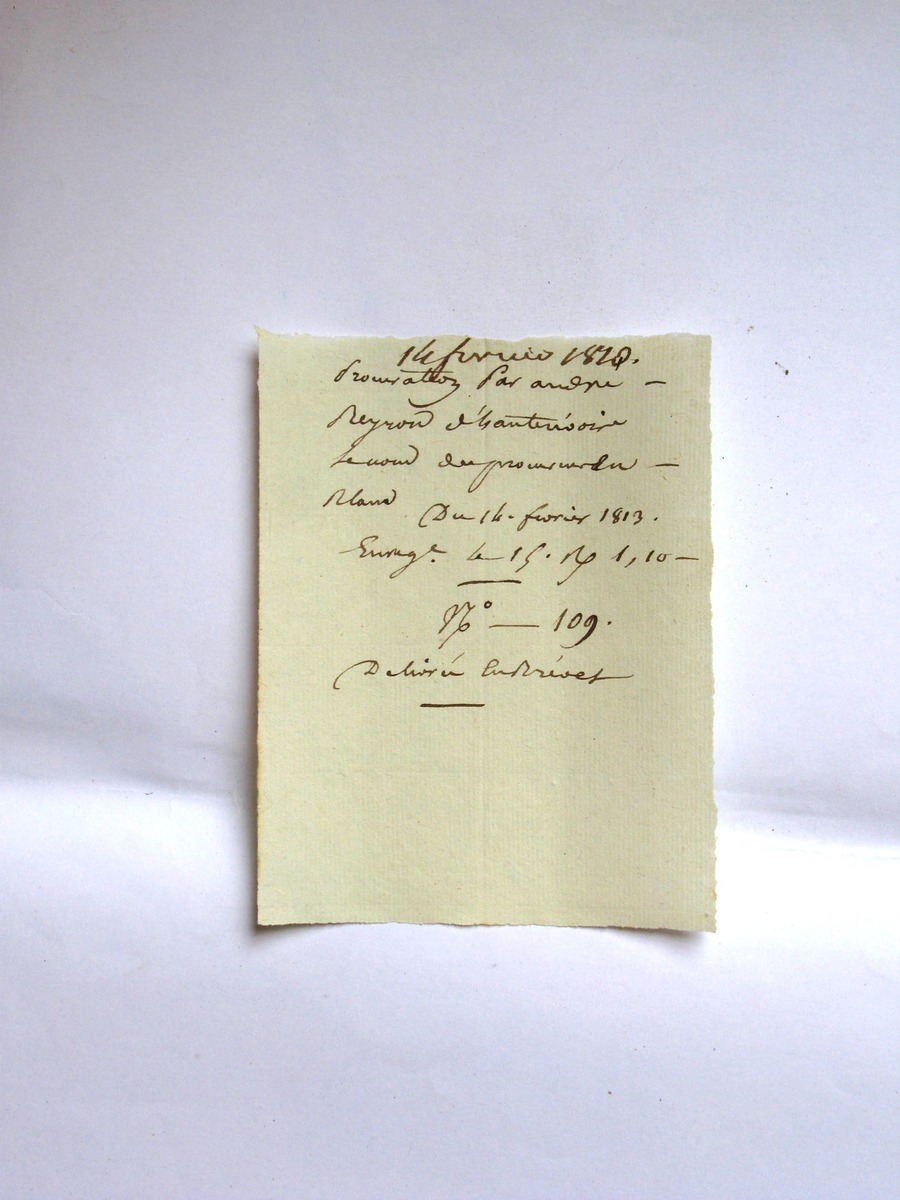 14 fevrier 1813.
Procuration Par andre —
Reynou d'hauterivoire
le nom du procureur en —
Blanc
Du 14. fevrier 1813.
Enreg.e le 15. R 1,10 —
N° — 109.
Delivrée En Brévet